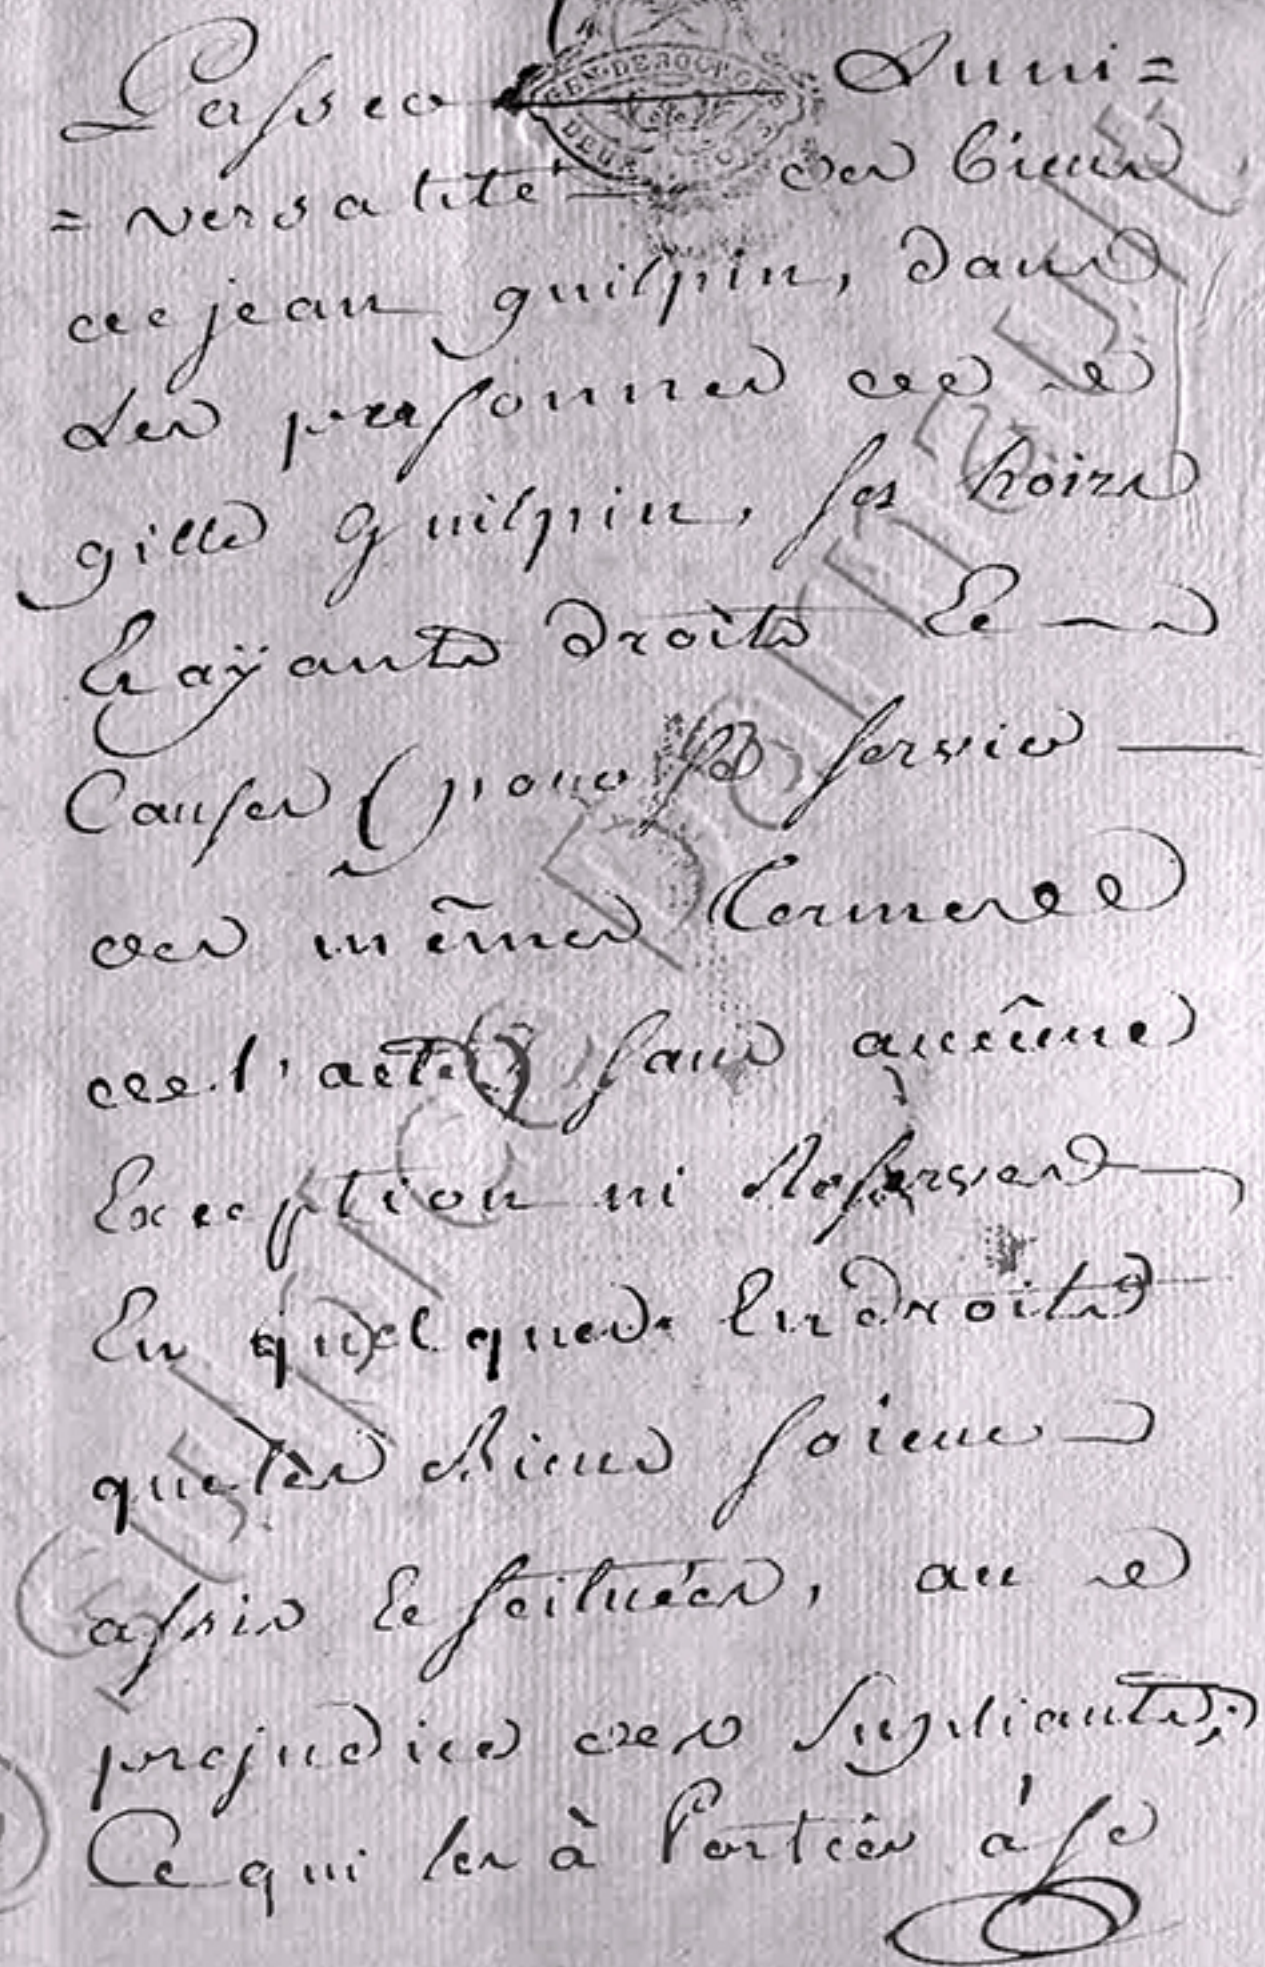 Passer Luni=
GEN. DE BOURGES
DEUX
=versalité des biens
de jean guilpin, dans
Les personnes de
gille Guilpin, ses hoirs
Et ayants droits Et
Causes (pour se servir
des mêmes Termes
de l'acte) sans aucûne
Exception ni Reserves
En quelques Endroits
que les Biens soient
assis Et scitués, au
prejudice des Supliants;
Ce qui les à Portés á se